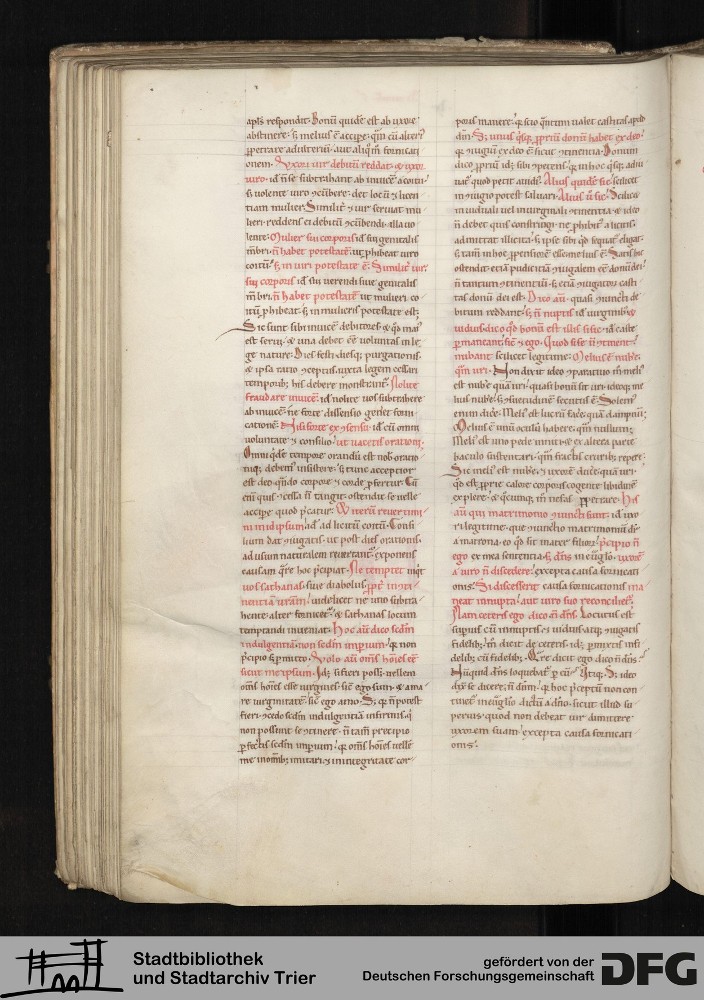 apls respondit. Bonū quidē est ab uxore
abstinere. ſ; melius ē accipe. qͣm cū alteri᷒
ꝑpetrare adulteriū. aut aliqͣm fornicati
onem. Uxori uir debitū reddat. & uxor
uiro. id ē n̄ se subtrahant ab inuicē a coitu.
ſ; uolente uiro ꝯcūbere. det locū & licen
tiam mulier. Similit᷑ & uir seruiat mu
lieri. reddens ei debitū ꝯcūbendi. illa uo
lente. Mulier sui corporis id sui genitalis
mēbri. n̄ habet potestatē. ut ꝓhibeat uiro
coitū. ſ; in uiri potestate ē. Similit᷑ uir.
sui corporis id sui uerendi siue genitalis
mēbri. n̄ habet potestatē ut mulieri co
itū ꝓhibeat. ſ; in mulieris potestate est.
Sic sunt sibi inuicē debitores. & qd mai᷒
est serui. & una debet eē uoluntas in le
ge nature. Dies festi. diesq; purgationis.
& ipsa ratio ꝯceptus. iuxta legem cessari
temporib; his debere monstrant. Nolite
fraudare inuicē. id nolite uos subtrahere
ab inuicē. ne forte dissensio gen̄et forni
cationē. Nisi forte ex ꝯsensu. id cū omni
uoluntate & consilio. ut uacetis orationi.
Omni qͥdē tempore orandū est nob. oratio
niq; debem᷒ insistere. ſ; tunc acceptior
est deo. qͣndo corpore & corde ꝓfertur. Cū
accipe quod p̄catur. Et iterū reuertimi-
ni in idipsum. id ad licitū coitū. Consi
lium dat ꝯiugatis. ut post dies orationis.
ad usum naturalem reuertant᷑. exponens
causam qͣre hoc p̄cipiat. Ne temptet inqt
uos sathanas. siue diabolus. ꝓpt̄ inꝯti-
nentiā urām. uidelicet ne uno subtra-
hente. alter fornicet᷑. & sathanas locum
temptandi inueniat. Hoc aūt dico scd̄m
indulgentiā. non scd̄m imꝑium. q; non
p̄cipio ſ; ꝑmitto. Volo aūt om̄s hoīes eē
sicut meipsum. Id; si fieri poss&. uellem
om̄s hoīes esse uirgines. sic ego sum. & ama
re uirginitatē. sic ego amo. S; q; n̄ potest
fieri. ꝯcedo scd̄m indulgentiā infirmis. qͥ
non possunt se ꝯtinere. n̄ tam̄ precipio
ꝑfectis scd̄m imꝑium. q; om̄s hoīes uelle
me in omīb; imitari. & in integritate cor-
poris manere. qͥ scio qͣntum ualet castitas apud
dm̄. S; unus qͥsq; ꝓprium donū habet ex deo.
q; ꝯiugiū ex deo ē. sicut ꝯtinentia. Donum
dico ꝓpriū id; sibi ꝯpetens. q; in hoc qͥsq; adiu
uat᷑ quod petit auidi᷒. Alius quidē sic. scilicet
in ꝯiugio potest saluari. Alius ū sic. Scilic&
in uiduali uel in uirginali ꝯtinentia. & ideo
n̄ debet quis constringi. ne ꝓhibit᷒ a licitis.
admittat illicita. ſ; ipse sibi qd sequat᷑ eligat.
ostendit. etiā pudicitiā ꝯiugalem eē donū dei.
n̄ tantum ꝯtinentiū. ſ; etiā ꝯiugatoꝝ casti
tas donū dei est. Dico aūt. quasi ꝯiuncti de
bitum reddant. ſ; n̄ nuptis id uirginib; &
uiduis dico qd bonū est illis si sic. id caste
ꝑmaneant sic & ego. Quod si se n̄ ꝯtinent.
nubant. scilicet legitime. Melius ē nubē.
qͣm uri. Non dixit ideo ꝯparatiuo m̄ meli᷒
est nubē quā uri. quasi bonū sit uri. ideoq; me
lius nubē. ſ; ꝯsuetudinē secutus ē. Solem᷒
enim dicē. Meli᷒ est lucrū facē. quā dampnū.
Melius ē unū oculū habere. qͣm nullum.
Meli᷒ est uno pede inniti. & ex altera parte
baculo sustentari. qͣm fractis crurib; repere.
Sic meli᷒ est nubē. & uxorē ducē. quā uri.
qd est ꝓprie calore corporis cogente libidinē
explere. & qͣcumq; m̄ nefas ꝑpetrare. His
aūt qui matrimonio ꝯiuncti sunt. id uiro
ri legitime. que ꝯiunctio matrimoniū dr̄
a matrona. eo qd sit mater filioꝝ. p̄cipio n̄
ego ex mea sententia. ſ; dn̄s in euglō. uxorē
a uiro n̄ discedere. excepta causa fornicati
onis. Si discesserit causa fornicationis. ma
neat innupta. aut uiro suo reconciliet᷑.
Nam ceteris ego dico n̄ dn̄s. Locutus est
supius cū innuptis & uiduis. atq; ꝯiugatis
fidelib;. m̄ dicit de ceteris. id; ꝑmixtis infi
delib; cū fidelib;. Qͣre dicit ego dico n̄ dn̄s.
Nūquid dn̄s loquebat᷑ ꝑ eū? Utiq;. S; ideo
dix̄ se dicere. n̄ dnm̄. q; hoc p̄ceptū non con
tinet᷑ in euglō dictū a dn̄o. sicut illud su
perius. quod non debeat uir dimittere
uxorem suam. excepta causa fornicati
onis.
Stadtbibliothek
und Stadtarchiv Trier
gefördert von der
Deutschen Forschungsgemeinschaft
DFG